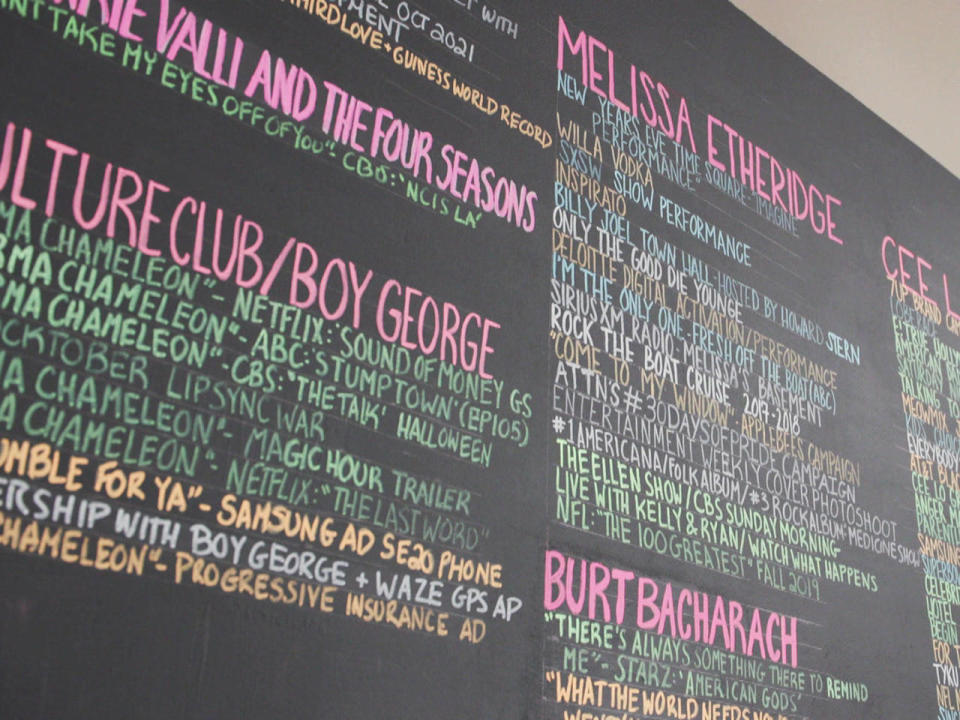 WITH
OCT 2021
THIRD LOVE + GUINESS WORLD RECORD
VALLI AND THE FOUR SEASONS
TAKE MY EYES OFF OF YOU"- CBS: 'NCIS LA'
ULTURE CLUB/BOY GEORGE
MA CHAMELEON"- NETFLIX: SOUND OF MONEY GS
RMA CHAMELEON"- ABC: STUMPTOWN' (EP105)
MA CHAMELEON"- CBS: 'THE TALK' HALLOWEEN
OCKTOBER LIPSYNC WAR
MA CHAMELEON"- MAGIC HOUR TRAILER
A CHAMELEON"- NETFLIX: "THE LAST WORD"
UMBLE FOR YA"- SAMSUNG AD SE20 PHONE
ERSHIP WITH BOY GEORGE + WAZE GPS AP
CHAMELEON"- PROGRESSIVE INSURANCE AD
MELISSA ETHERIDGE
NEW YEARS EVE TIME SQUARE- IMAGINE
PERFORMANCE
WILLA VODKA
SXSW SHOW PERFORMANCE
INSPIRATO
BILLY JOEL TOWN HALL HOSTED BY HOWARD STERN
ONLY THE GOOD DIE YOUNGE
DELOITTE DIGITAL ACTIVATION/PERFORMANCE
I'M THE ONLY ONE- FRESH OFF THE BOAT (ABC)
SIRIUS XM RADIO, MELISSA'S BASEMENT
ROCK THE BOAT CRUISE 2017-2018
"COME TO MY WINDOW", APPLEBEE'S CAMPAIGN
ATTNS #30DAYSOFPRIDE CAMPAIGN
ENTERTAINMENT WEEKLY COVER PHOTOSHOOT
#1 AMERICANA/FOLK ALBUM/#3 ROCK ALBUM- MEDICINE SHOW
THE ELLEN SHOW/CBS SUNDAY MORNING
LIVE WITH KELLY & RYAN/WATCH WHAT HAPPENS
NFL: "THE 100 GREATEST" FALL 2019
BURT BACHARACH
"THERE'S ALWAYS SOMETHING THERE TO REMIND
ME"- STARZ: 'AMERICAN GODS'
"WHAT THE WORLD NEEDS NOW
CEE L
AMERICAN
TALKING TO
MEOWMIX
EVERYBODY
CEE LO
SAMSUNG
CELEBRIT
HOTEL
BEGIN
TYKU